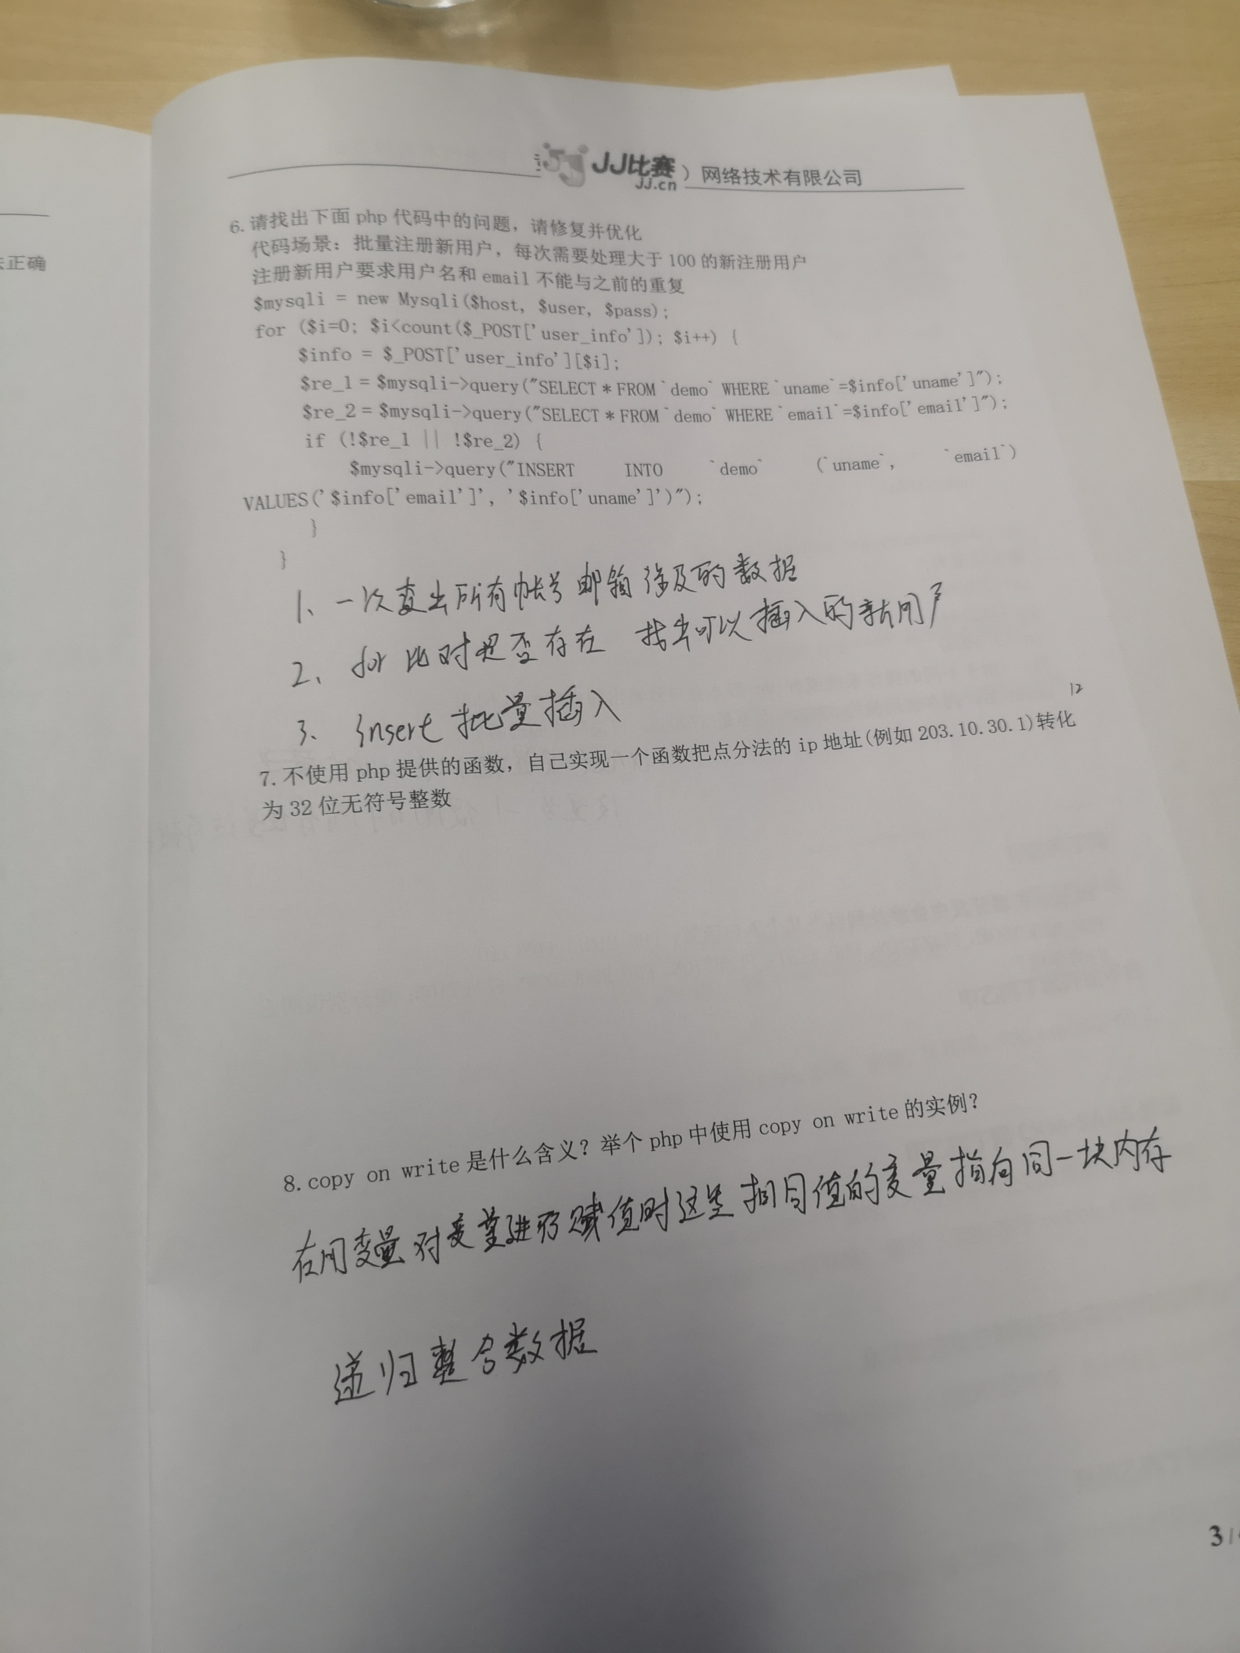 JJ比赛
JJ.cn
）网络技术有限公司
正确
6.请找出下面 php 代码中的问题，请修复并优化
代码场景：批量注册新用户，每次需要处理大于 100 的新注册用户
注册新用户要求用户名和 email 不能与之前的重复
$mysqli = new Mysqli($host, $user, $pass);
for ($i=0; $i<count($_POST['user_info']); $i++) {
$info = $_POST['user_info'][$i];
$re_1 = $mysqli->query("SELECT * FROM `demo` WHERE `uname`=$info['uname']");
$re_2 = $mysqli->query("SELECT * FROM `demo` WHERE `email`=$info['email']");
if (!$re_1 || !$re_2) {
$mysqli->query("INSERT INTO `demo` (`uname`, `email`)
VALUES('$info['email']', '$info['uname']')");
}
}
1、一次查出所有帐号 邮箱 涉及的数据
2、for 比对是否存在 找出可以插入的新用户
3、insert 批量插入
12
7.不使用 php 提供的函数，自己实现一个函数把点分法的 ip 地址(例如 203.10.30.1)转化
为 32 位无符号整数
8.copy on write 是什么含义？举个 php 中使用 copy on write 的实例？
在用变量对变量进行赋值时这些相同值的变量指向同一块内存
递归整合数据
3